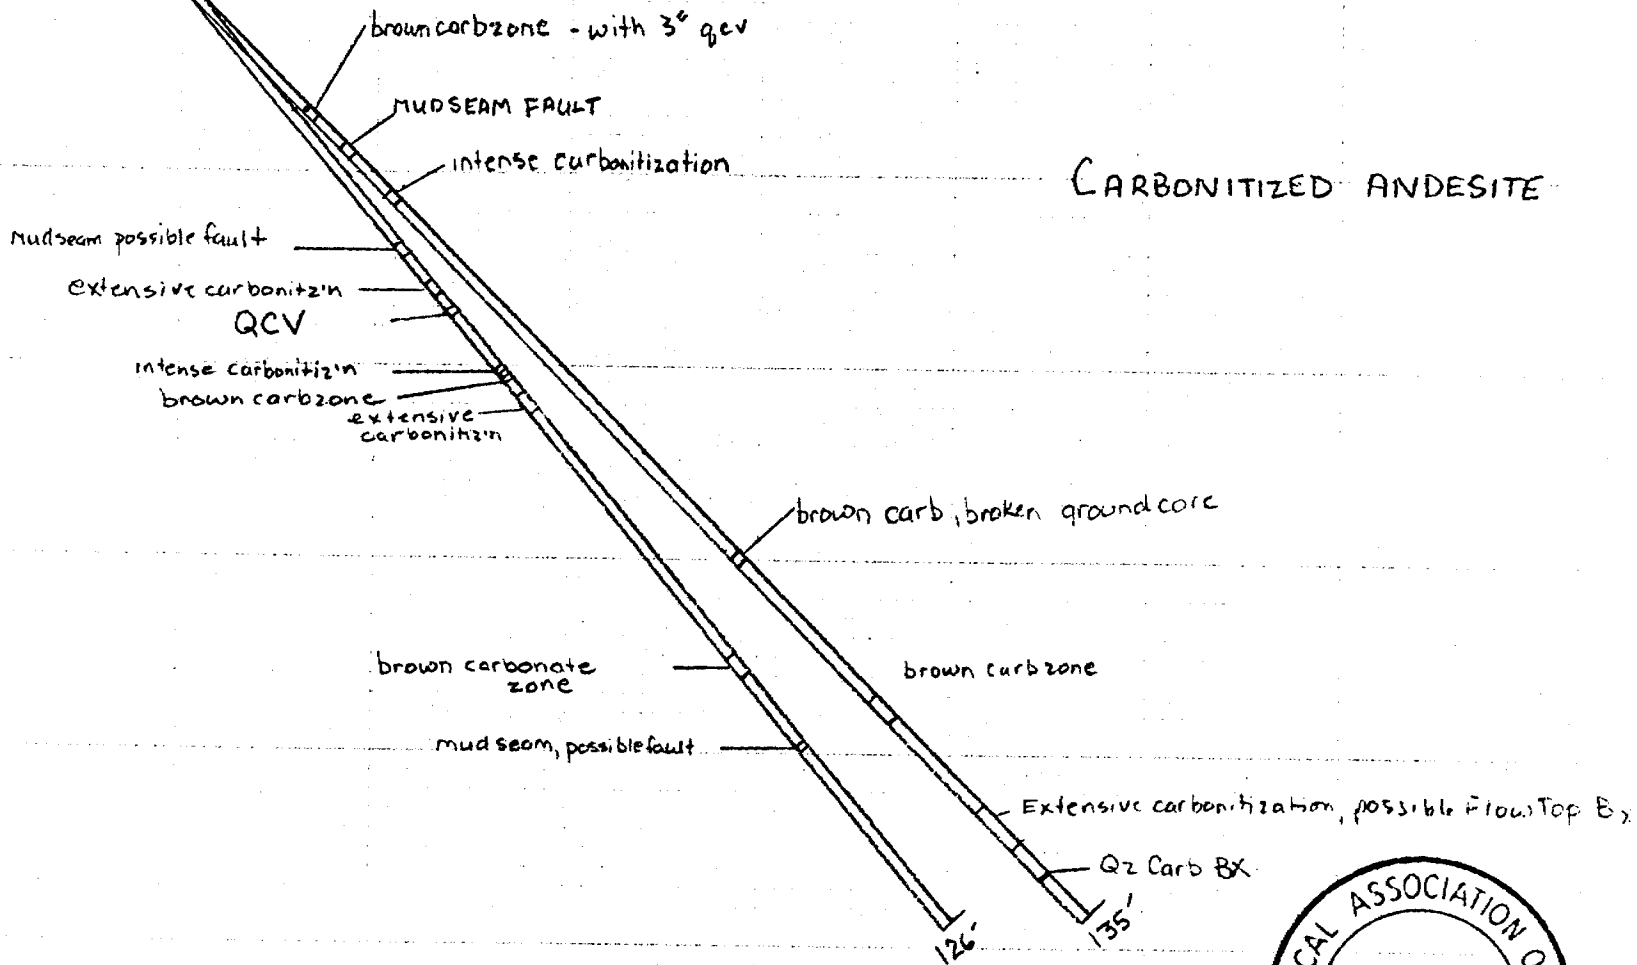 brown carbzone - with 3" qcv
MUDSEAM FAULT
intense carbonitization
CARBONITIZED ANDESITE
Mudseam possible fault
extensive carbonitz'n
QCV
intense carbonitiz'n
brown carbzone
extensive
carbonitiz'n
brown carb, broken ground core
brown carbonate
zone
brown carbzone
mud seam, possible fault
Extensive carbonitization, possible Flow Top Bx
Qz Carb BX
126'
135'
CAL ASSOCIATION O